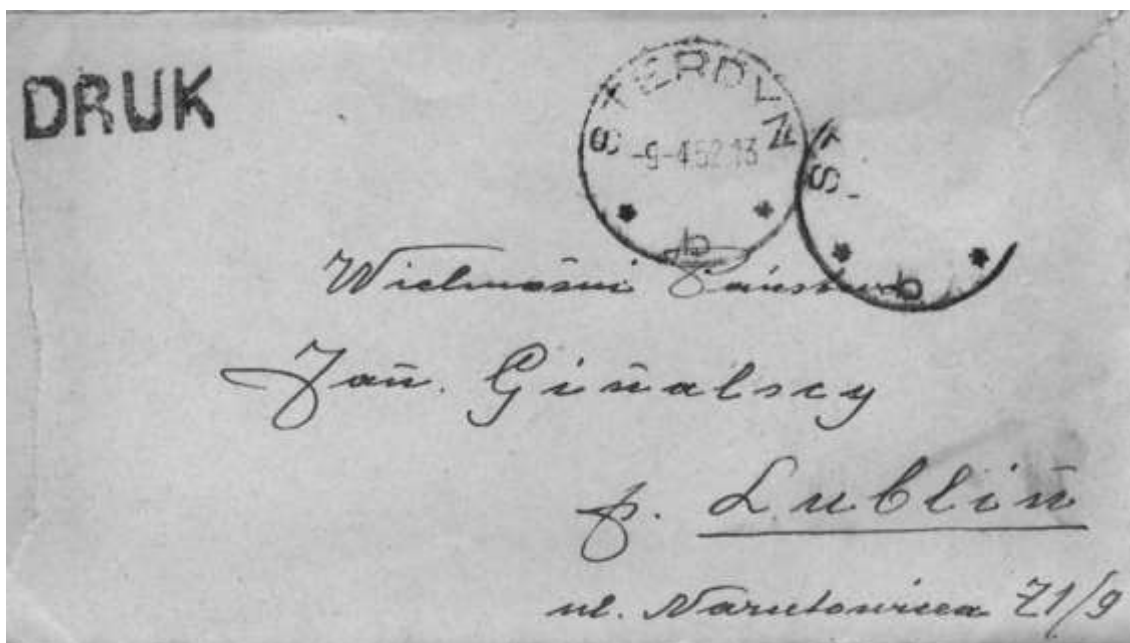 DRUK
STERDYŃ
-9-4.52.13
b
ST
b
Wielmożni Państwo
Jan. Gińalscy
p. Lubliń
ul. Narutowicza 71/9